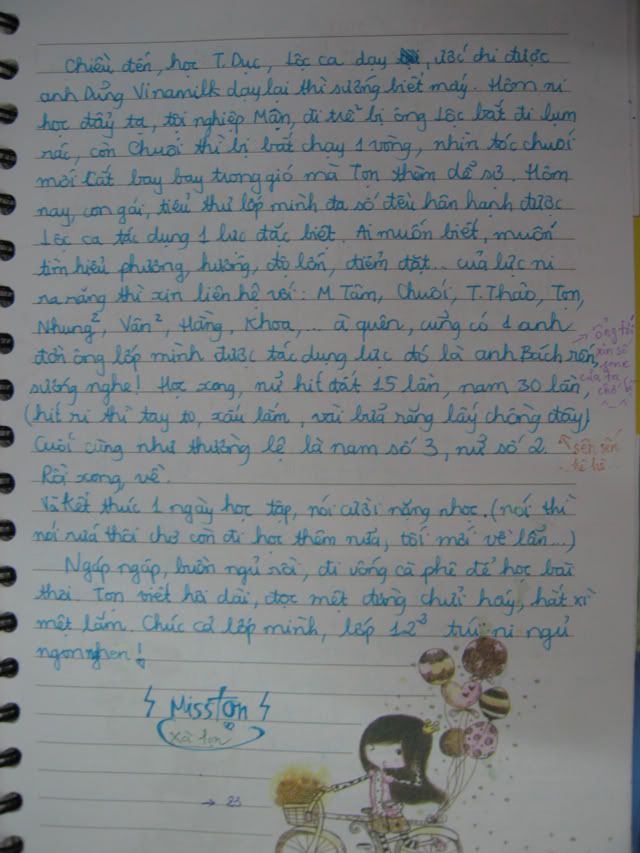 Chiều đến, học T.Dục, Lộc ca dạy, ước chi được
anh Dũng Vinamilk dạy lại thì sướng biết mấy. Hôm ni
học đẩy tạ, tội nghiệp Mận, đi trễ bị ông Lộc bắt đi lụm
rác, còn Chuối thì bị bắt chạy 1 vòng, nhìn tóc chuối
mới cắt bay bay trong gió mà Tọn thèm dể sợ. Hôm
nay, con gái, tiểu thư lớp mình đa số đều hân hạnh được
Lộc ca tác dụng 1 lực đặc biệt. Ai muốn biết, muốn
tìm hiểu phương, hướng, độ lớn, điểm đặt... của lực ni
ra răng thì xin liên hệ với: M.Tâm, Chuối, T.Thảo, Tọn,
Nhung², Vân², Hằng, Khoa,... à quên, cũng có 1 anh
đờn ông lớp mình được tác dụng lực đó là anh Bách rến,
sướng nghe! Học xong, nữ hít đất 15 lần, nam 30 lần,
(hít ri thì tay to, xấu lắm, vài bữa răng lấy chồng đây)
Cuối cùng như thường lệ là nam số 3, nữ số 2.
Rồi xong, về.
Và kết thúc 1 ngày học tập, nói cười nặng nhọc. (nói thì
nói rứa thôi chơ còn đi học thêm nữa, tối mới về lận...)
Ngáp ngáp, buồn ngủ rồi, đi uống cà phê để học bài
thôi. Tọn viết hơi dài, đọc mệt đừng chửi háy, hắt xì
mệt lắm. Chúc cả lớp mình, lớp 12³ trúi ni ngủ
ngon nghen!
Miss tọn
xà lọn
→ ổng tới
xin số
fone
của ta
sến sến
hê hê
→ 23